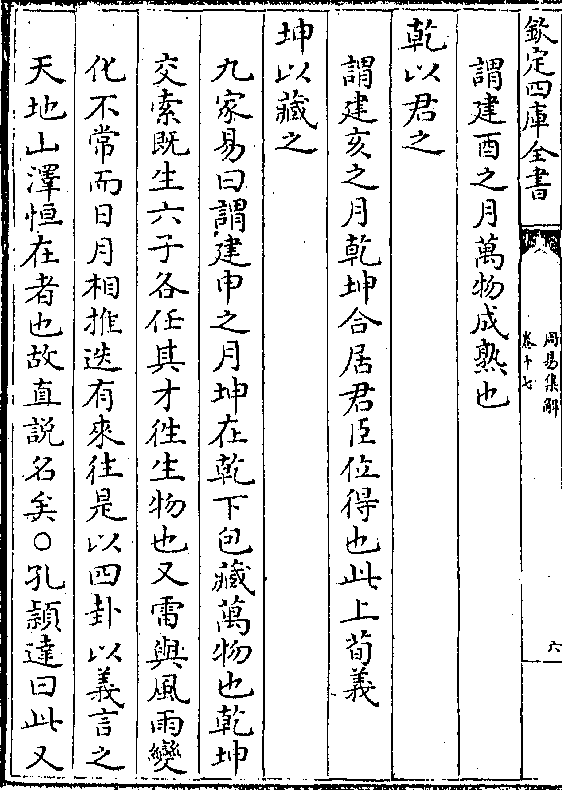 欽定四庫全書
周易集解
卷十七
六
謂建酉之月萬物成熟也
乾以君之
謂建亥之月乾坤合居君臣位得也此上荀義
坤以藏之
九家易曰謂建申之月坤在乾下包藏萬物也乾坤
交索既生六子各任其才徃生物也又雷與風雨變
化不常而日月相推迭有來往是以四卦以義言之
天地山澤恒在者也故直説名矣○孔穎達曰此又